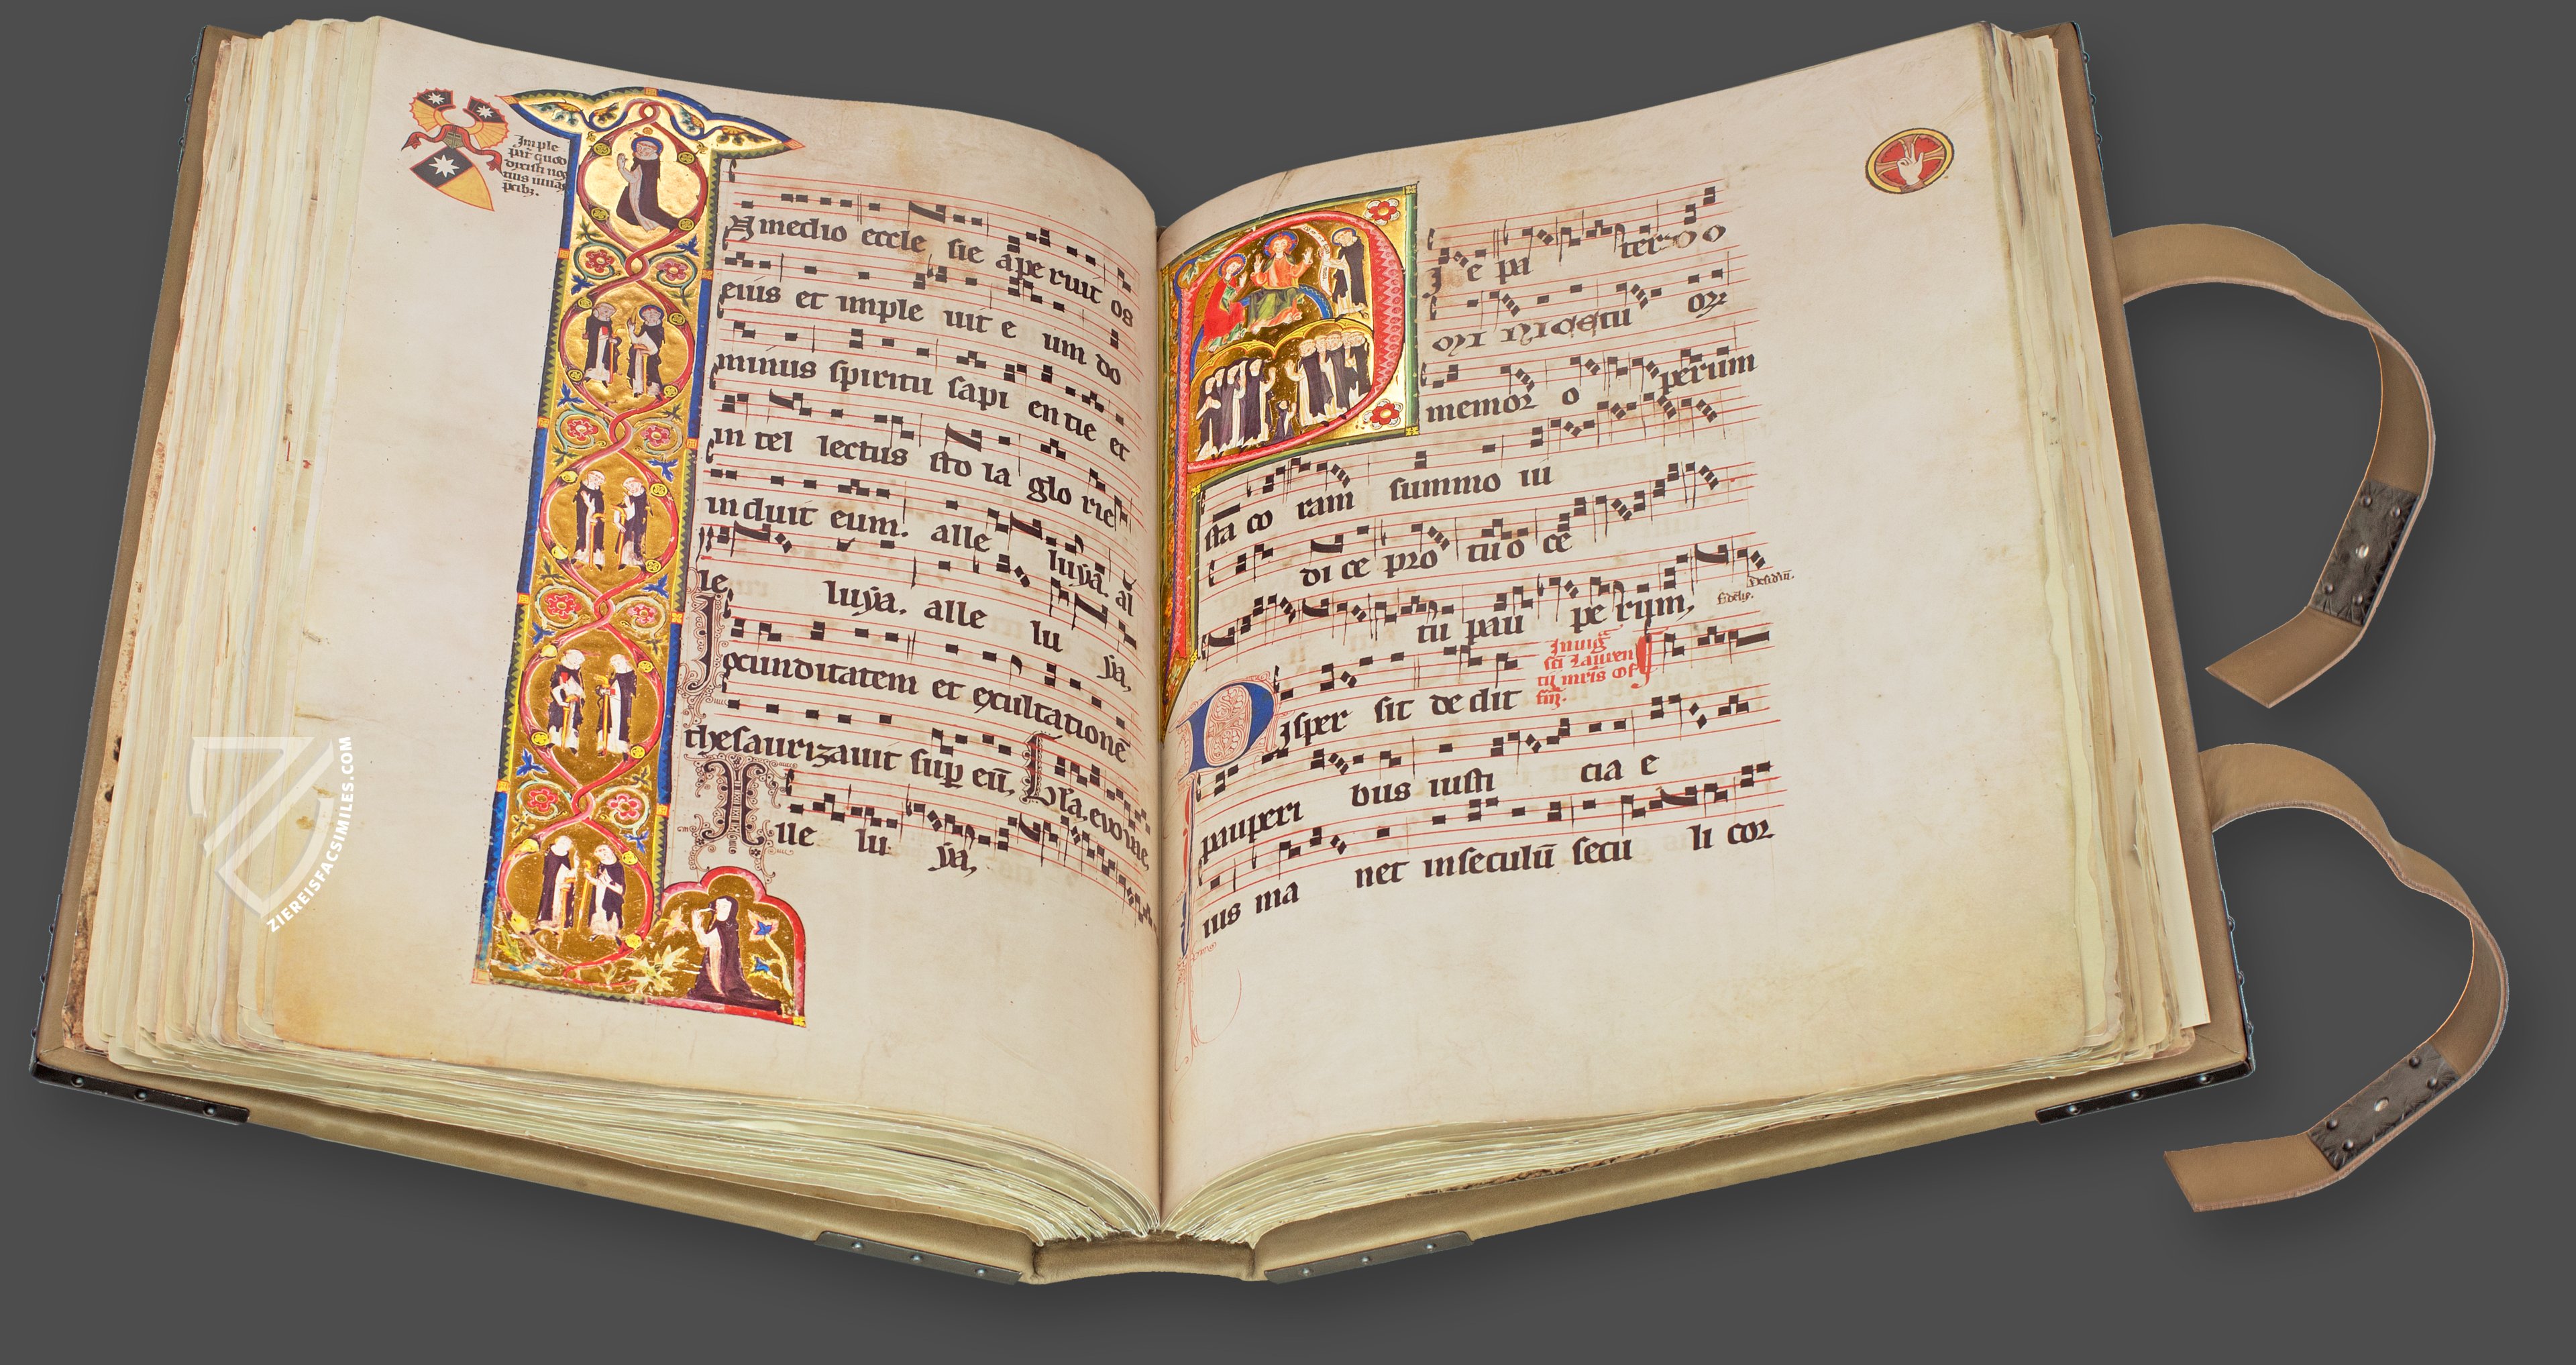 Imple
pat quod
dixisti
N medio eccle sie ape ruit os
eius et imple uit e um do
minus spiritu sapi entie et
in tel lectus sto la glo rie
induit eum. alle luya. al
le luya. alle lu ya,
Jocunditatem et exultatione
thesaurizauit sup eū, Gla, evovae,
A lle lu ya,
P i e pa ter o o
ordi nis tu or
memor o perum
sta co ram summo iu
di ce pro tuo ce
tu pau pe rum,
Jn uig
sci Lauren
tij mris Of
fm.
D isper sit dedit
pauperi bus iusti cia e
ius ma net in seculū secu li cor
ZIEREISFACSIMILES.COM